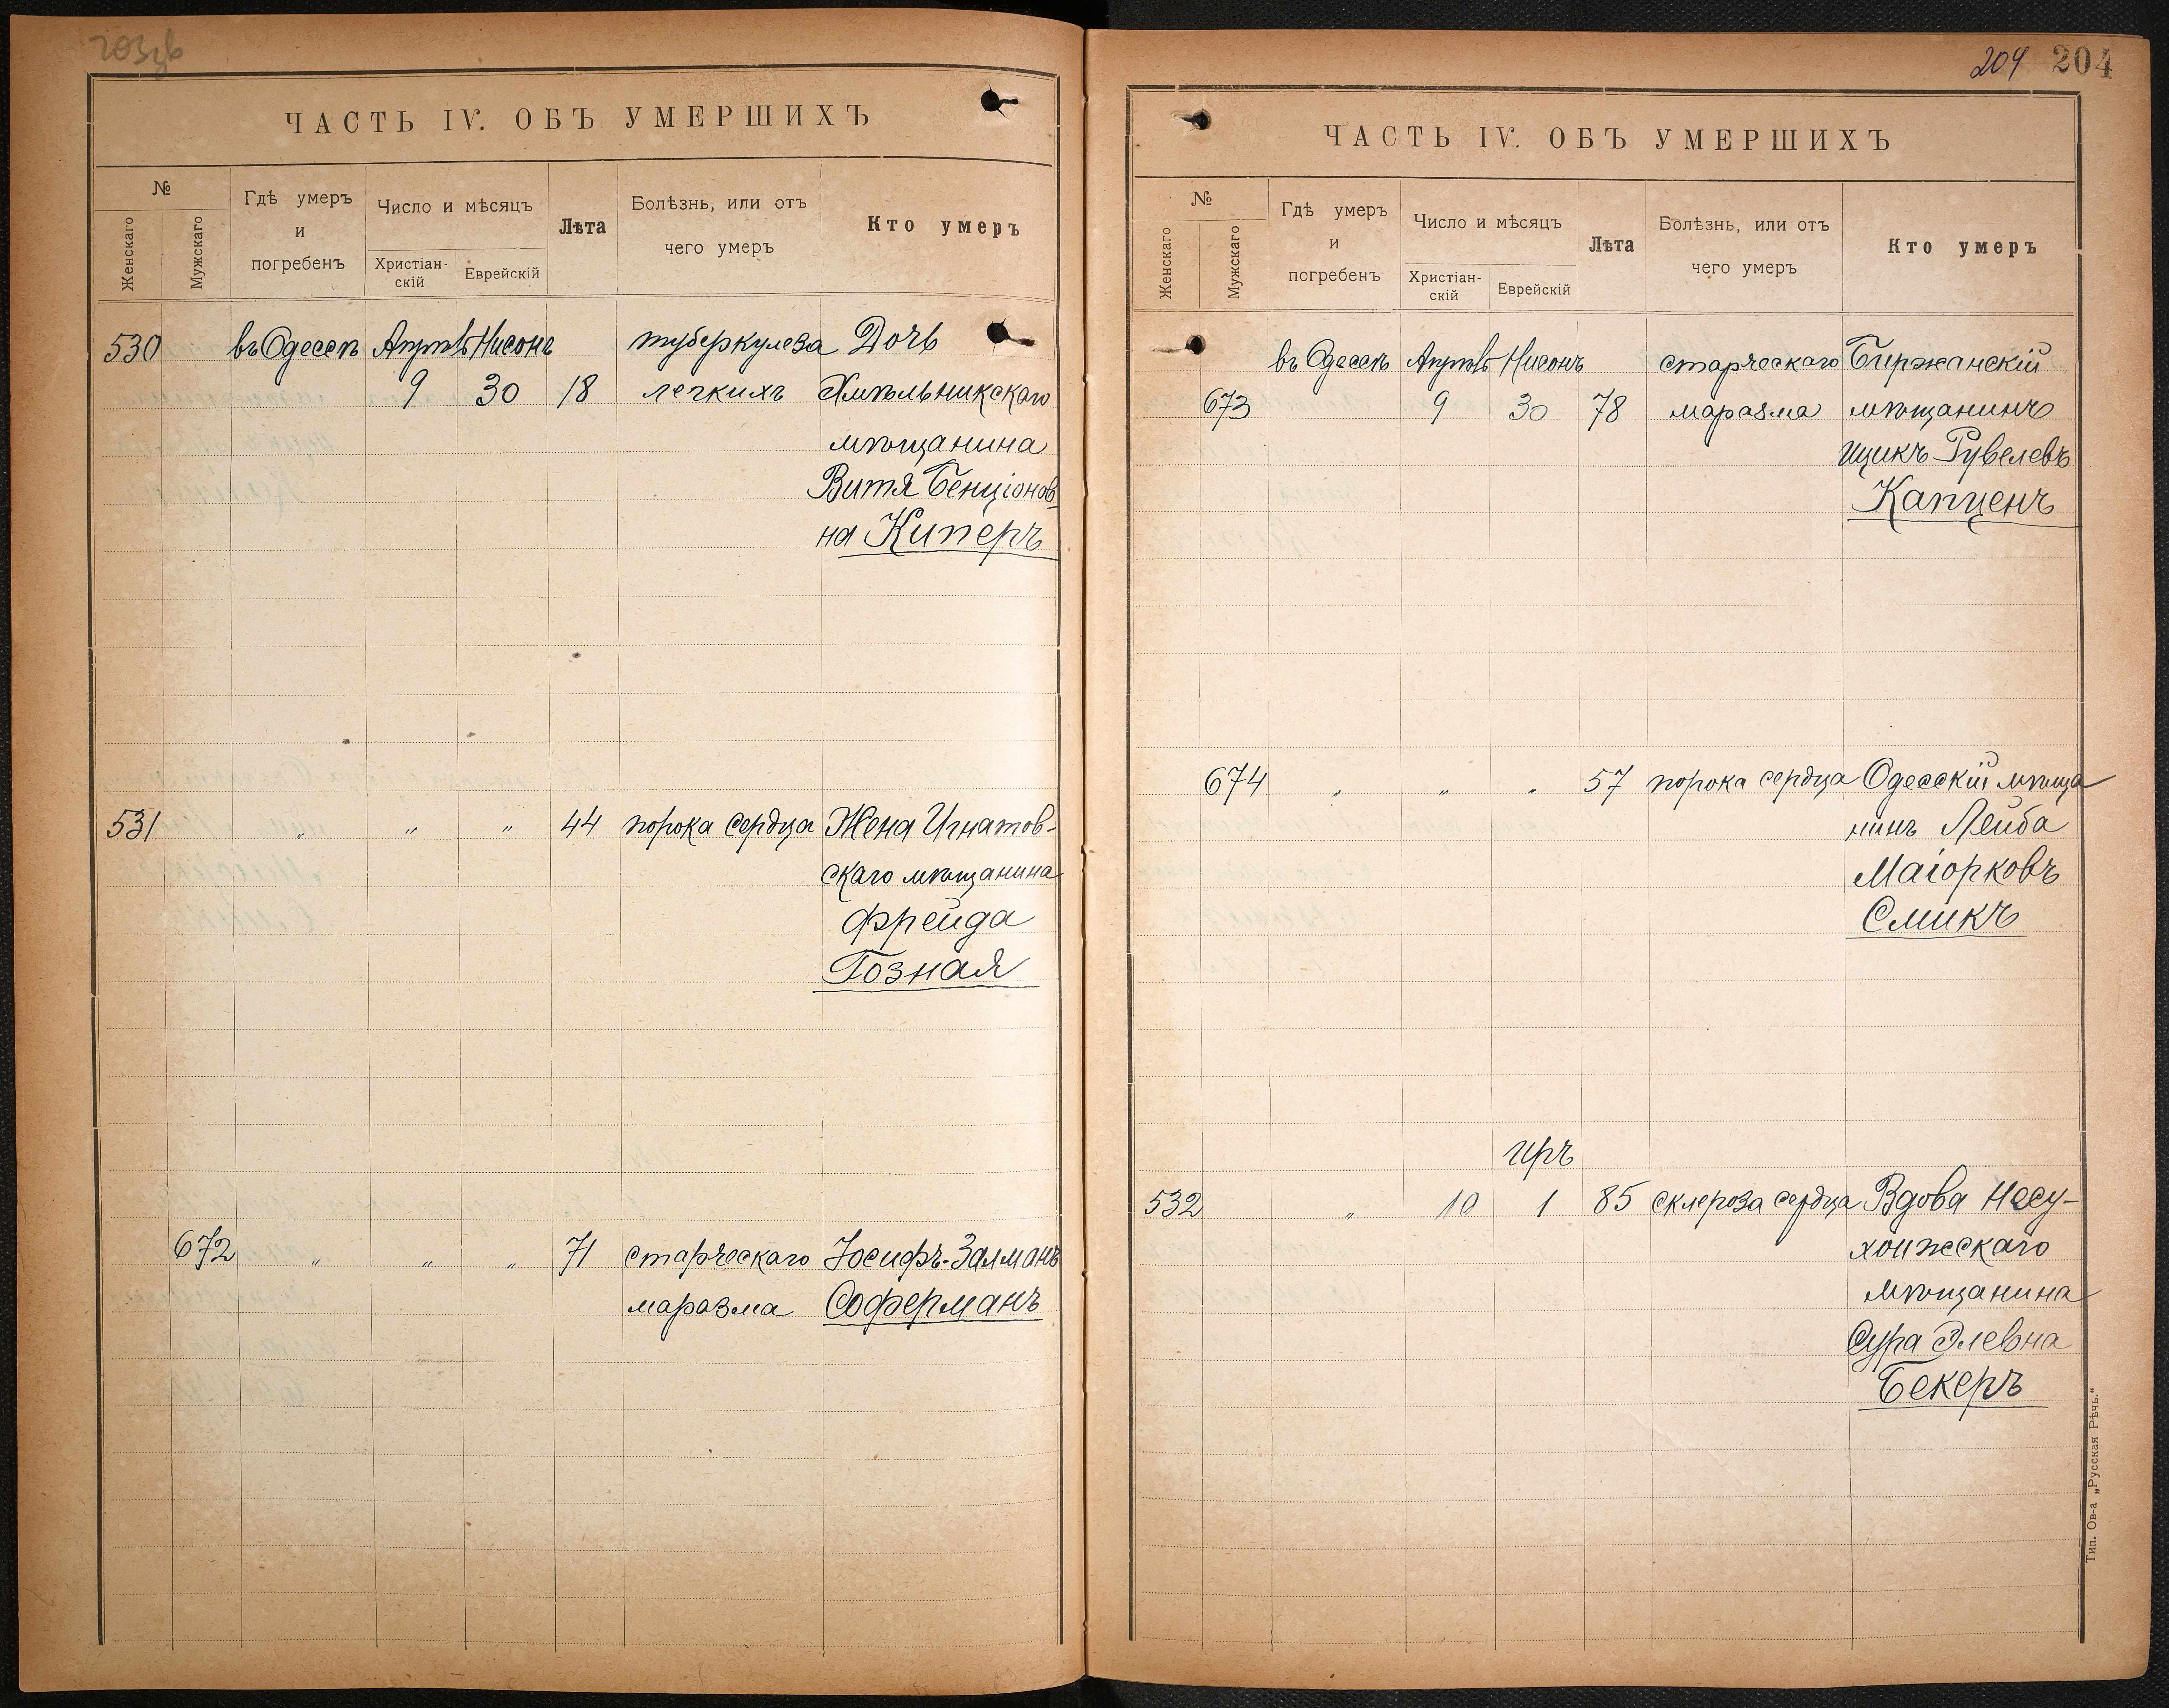 ЧАСТЬ IV. ОБЪ УМЕРШИХЪ
№
Женскаго
Мужскаго
Гдѣ умеръ
и
погребенъ
Число и мѣсяцъ
Христіан-
скій
Еврейскій
Лѣта
Болѣзнь, или отъ
чего умеръ
Кто умеръ
530 въ Одессѣ Апрѣль Нисонъ туберкулеза Дочь
9 30 18 легкихъ Хмѣльникскаго
мѣщанина
Витя Бенціонов
на Киперъ
531 " " " 44 порока сердца Жена Игнатов-
скаго мѣщанина
Фрейда
Гозная
672 " " " 71 старческаго Іосифъ-Залманъ
маразма Соферманъ
204 204
ЧАСТЬ IV. ОБЪ УМЕРШИХЪ
№
Женскаго
Мужскаго
Гдѣ умеръ
и
погребенъ
Число и мѣсяцъ
Христіан-
скій
Еврейскій
Лѣта
Болѣзнь, или отъ
чего умеръ
Кто умеръ
въ Одессѣ Апрѣль Нисонъ старческаго Биржанскій
673 9 30 78 маразма мѣщанинъ
Ицикъ Рувелевъ
Капценъ
674 " " " 57 порока сердца Одесскій мѣща
нинъ Лейба
Маіорковъ
Смикъ
Иръ
532 " 10 1 85 склероза сердца Вдова Несу-
хоижскаго
мѣщанина
Сура Элевна
Бекеръ
Тип. Ов-а „Русская Рѣчь.“